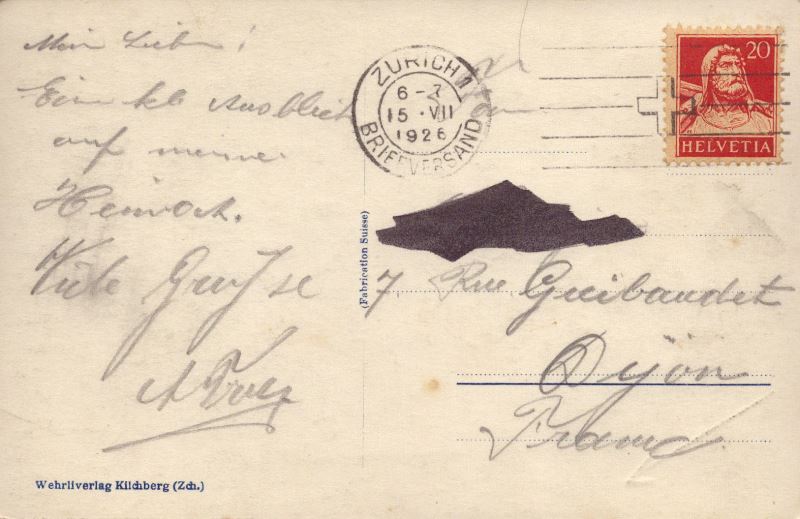 Mein Lieber!
Ein kl Ausblick
auf meine
Heimat.
Viele Grüsse
ZÜRICH 1
6-
15·VII
1926
BRIEFVERSAND
20
HELVETIA
(Fabrication Suisse)
7, Rue Guibaudet
Dijon
France
Wehrliverlag Kilchberg (Zch.)